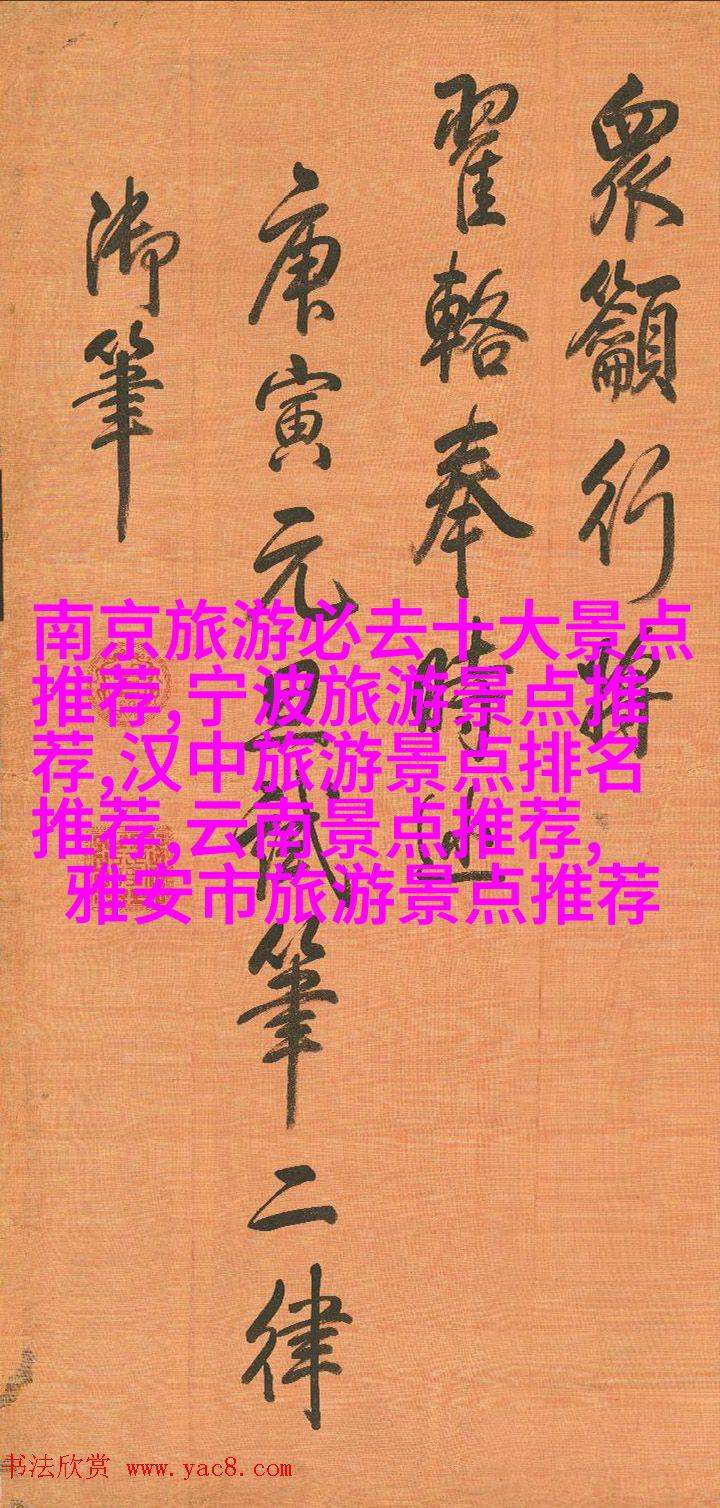 眾籲行將
翟輅奉時巡
庚寅元旦試筆二律
御筆
南京旅游必去十大景点
推荐,宁波旅游景点推
荐,汉中旅游景点排名
推荐,云南景点推荐,
雅安市旅游景点推荐
书法欣赏 www.yac8.com